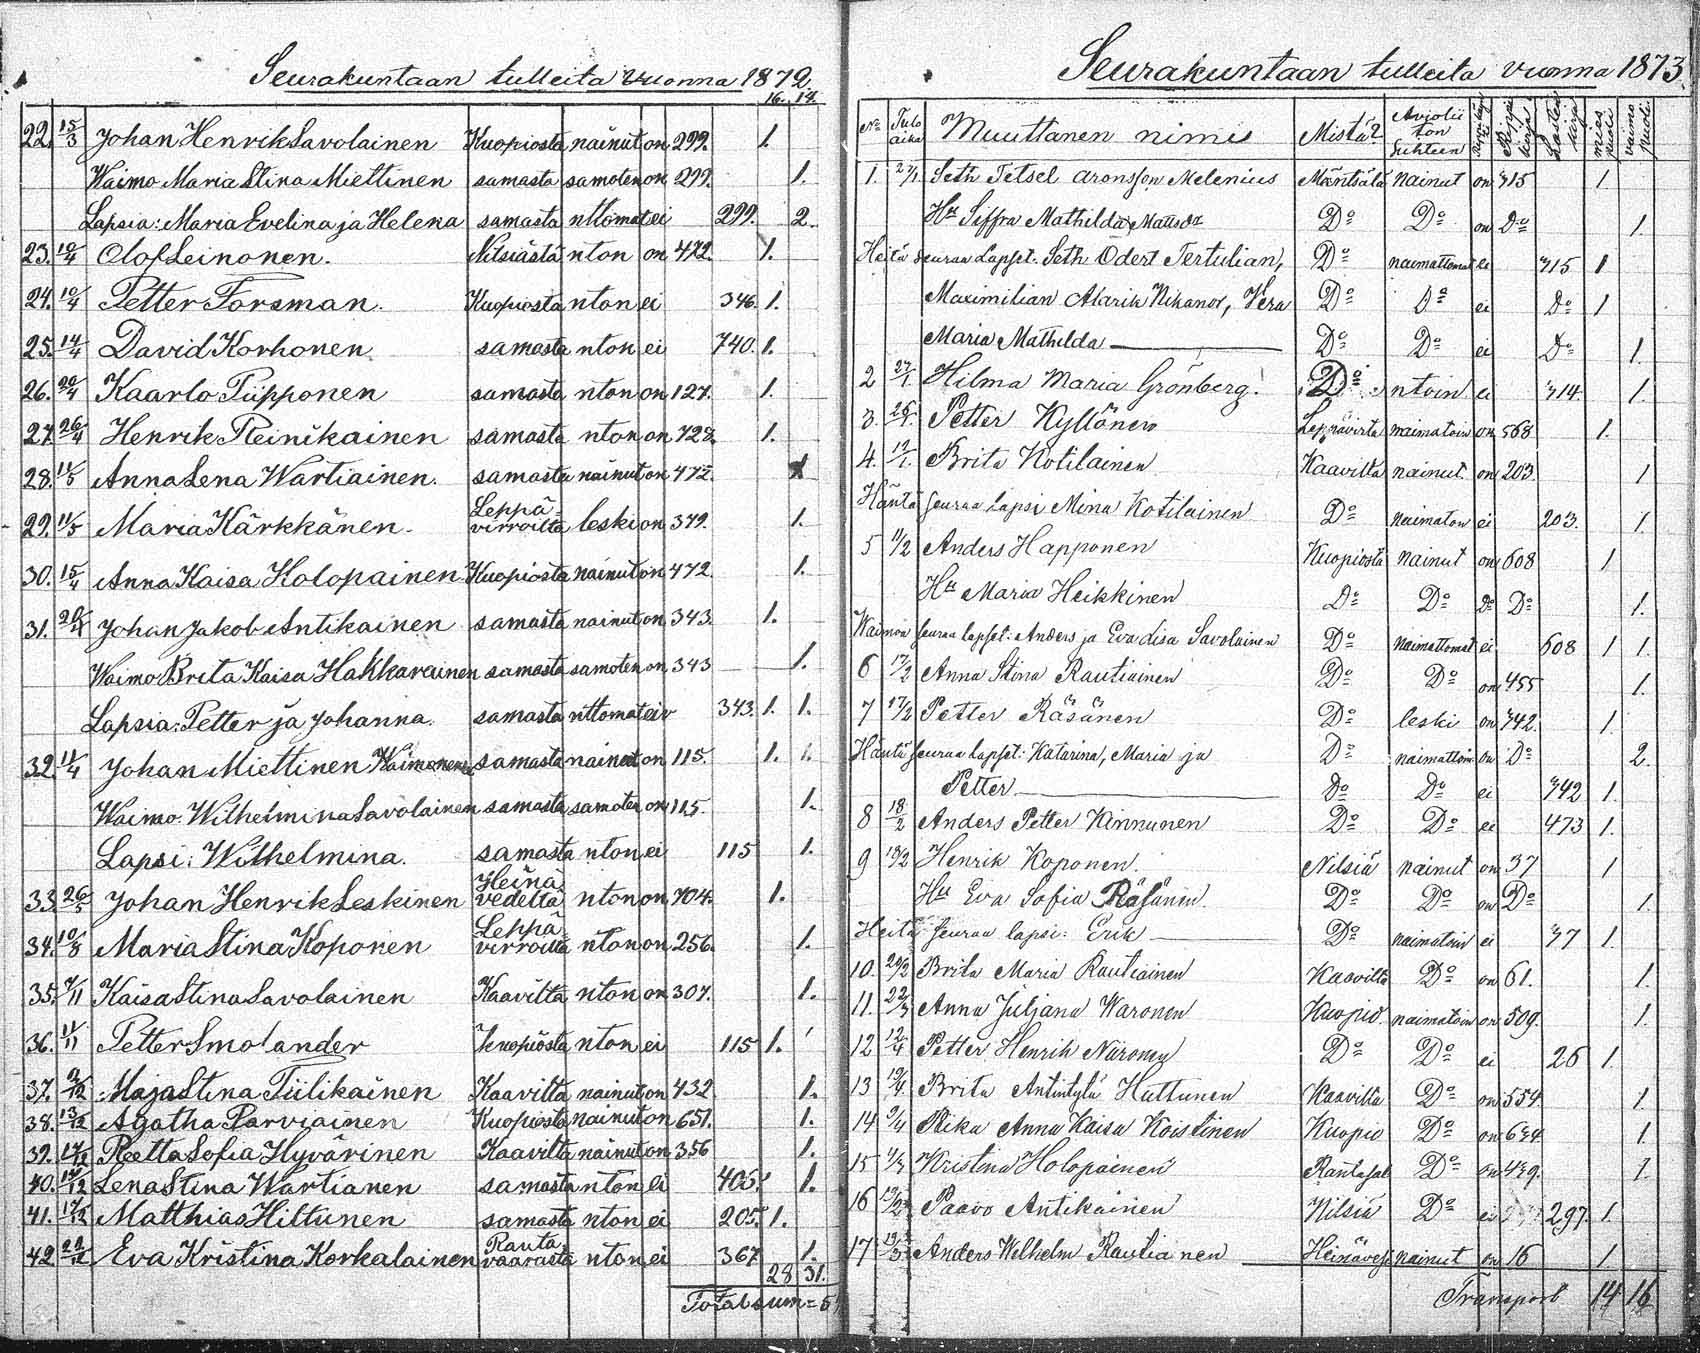 Seurakuntaan tulleita vuonna 1872.
16. 14.
22. 15/3 Johan Henrik Savolainen Kuopiosta nainut on 299. 1.
Waimo Maria Stina Miettinen samasta samoten on 299. 1.
Lapsia: Maria Evelina ja Helena samasta nttomat ei 299. 2.
23. 10/4 Olof Leinonen. Nilsiästä nton on 472. 1.
24. 10/4 Petter Forsman. Kuopiosta nton ei 346. 1.
25. 14/4 David Korhonen samasta nton ei 740. 1.
26. 20/4 Kaarlo Piipponen samasta nton on 127. 1.
27. 26/4 Henrik Reinikainen samasta nton on 728. 1.
28. 11/5 Anna Lena Wartiainen. samasta nainut on 472. 1
29. 11/5 Maria Kärkkänen. Leppä-virroilta leski on 379. 1.
30. 15/4 Anna Kaisa Holopainen Kuopiosta nainut on 472. 1.
31. Johan Jakob Antikainen samasta nainut on 343. 1.
Waimo Brita Kaisa Hakkarainen samasta samoten on 343 1.
Lapsia: Petter ja Johanna. samasta nttomat ei 343. 1. 1.
32. 11/4 Johan Miettinen samasta nainut on 115. 1. 1.
Waimo. Wilhelmina Savolainen samasta samoten on 115. 1.
Lapsi: Wilhelmina. samasta nton ei 115 1.
33. 26/5 Johan Henrik Leskinen Heinävedeltä nton on 704. 1.
34. 10/8 Maria Stina Koponen Leppä-virroilta nton on 256. 1.
35. 7/11 Kaisa Stina Savolainen Kaavilta nton on 307. 1.
36. 11/11 Petter Smolander Kuopiosta nton ei 115 1.
37. 9/12 Maja Stina Tiilikainen Kaavilta nainut on 432 1.
38. 13/12 Agatha Parviainen Kuopiosta nainut on 651. 1.
39. 17/12 Reetta Sofia Hyvärinen Kaavilta nainut on 356 1.
40. 17/12 Lena Stina Wartianen samasta nton ei 405. 1.
41. 17/12 Matthias Hiltunen samasta nton ei 205. 1.
42. 29/12 Eva Kristina Korkalainen Rautavaarasta nton ei 367 1.
28 31.
Total sum = 5
Seurakuntaan tulleita vuonna 1873.
No Tulo aika Muuttanen nimi Mistä? Aviolii ton suhteen Rippi kirja Lasten kirja mies puoli. vaimo puoli.
1. 2/1 Seth Tetsel Aronsson Melenius Mäntsälä nainut on 315 1
Hu Siffra Mathilda Do Do on Do 1.
Heitä seuraa Lapset. Seth Odert Tertulian, Do naimattomat ei 315 1
Maximilian Alarik Nikanor, Vera Do Do ei Do 1
Maria Mathilda Do Do ei Do 1.
2 27/1. Hilma Maria Grönberg. Do ntoin ei 314. 1.
3. Petter Kyllönen Leppävirta naimatoin on 568 1.
4. 12/1. Brita Kotilainen Kaavilta nainut. on 203. 1
Häntä seuraa Lapsi Mina Kotilainen Do naimaton ei 203. 1.
5 11/2 Anders Happonen Kuopiosta nainut on 608 1
Hu Maria Heikkinen Do Do Do Do 1.
Waimoa seuraa lapset: Anders ja Eva Lisa Savolainen Do naimattomat ei 608 1 1.
6 17/2 Anna Stina Rautiainen Do Do on 455 1.
7 17/2 Petter Räsänen Do leski on 342. 1.
Häntä seuraa lapset: Katarina, Maria ja Do naimattom. on Do 2.
Petter Do Do ei 342 1.
8 18/2 Anders Petter Kinnunen Do Do ei 473 1.
9 18/2 Henrik Koponen. Nilsiä nainut on 37 1
Hu Eva Sofia Räsänin. Do Do on Do 1.
Heitä seuraa lapsi: Erik Do naimatoin ei 37 1.
10. 20/2 Brita Maria Rautiainen Kaavilta Do on 61. 1.
11. 22/3 Anna Juljana Waronen Kuopio. naimatoin on 509. 1.
12 12/4 Petter Henrik Niironen Do Do ei 26 1.
13 19/4 Brita Antintytä Huttunen Kaavilta Do on 554. 1.
14 9/4 Rika Anna Kaisa Koistinen Kuopio Do on 634. 1.
15 4/3 Kristina Holopainen Rantasal Do on 439. 1.
16 Paavo Antikainen Nilsiä Do ei 297. 1.
17 Anders Welhelm Rautiainen Heinävesi nainut on 16 1
Transport 14 16